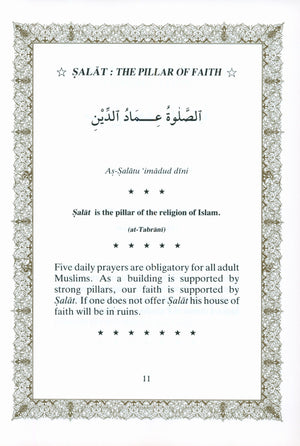 ☆ ṢALĀT : THE PILLAR OF FAITH ☆
اَلصَّلٰوةُ عِــمَادُ الدِّيْنِ
Aṣ-Ṣalātu ‘imādud dīni
★ ★ ★
Ṣalāt is the pillar of the religion of Islam.
(at-Tabrāni)
★ ★ ★ ★ ★
Five daily prayers are obligatory for all adult
Muslims. As a building is supported by
strong pillars, our faith is supported by
Ṣalāt. If one does not offer Ṣalāt his house of
faith will be in ruins.
★ ★ ★ ★ ★ ★ ★
11